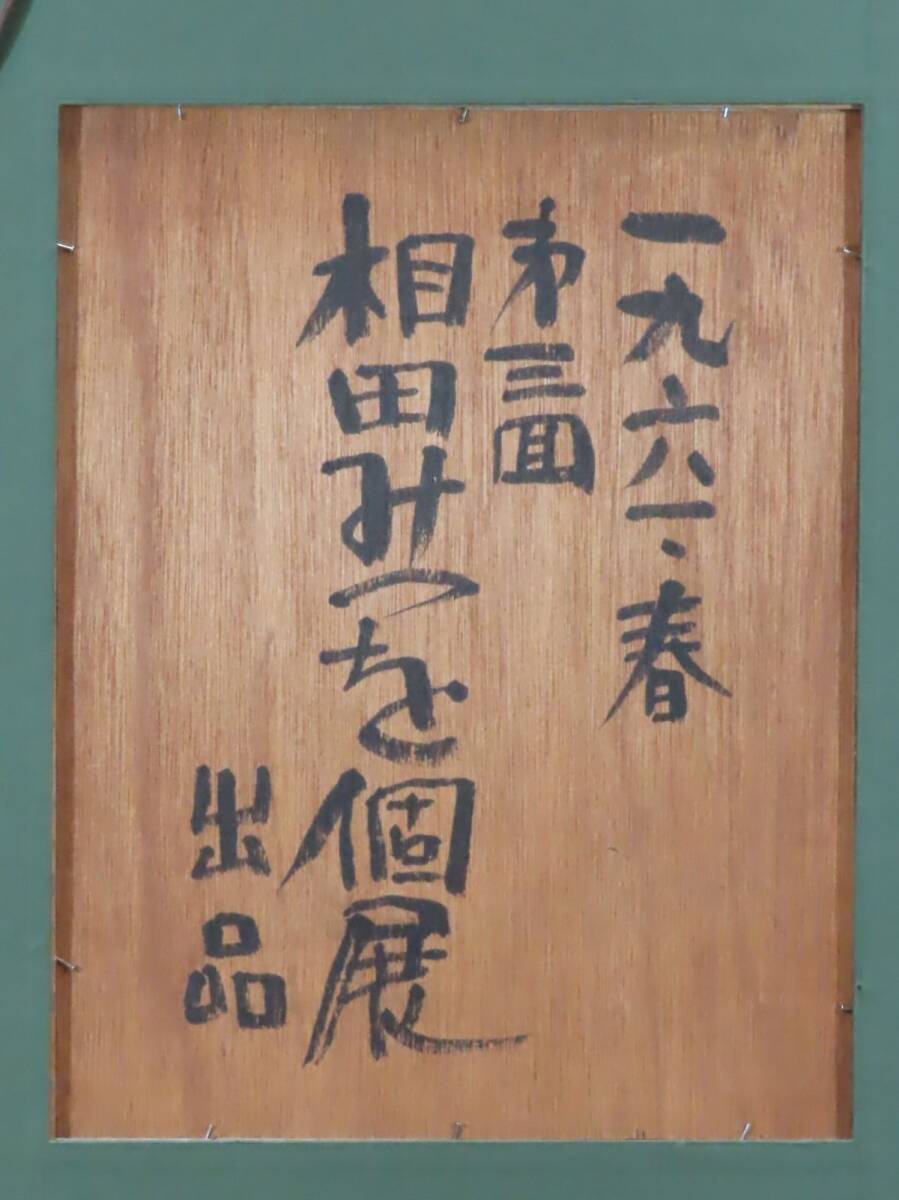 一九六一、春
第三回
相田みつを個展
出品